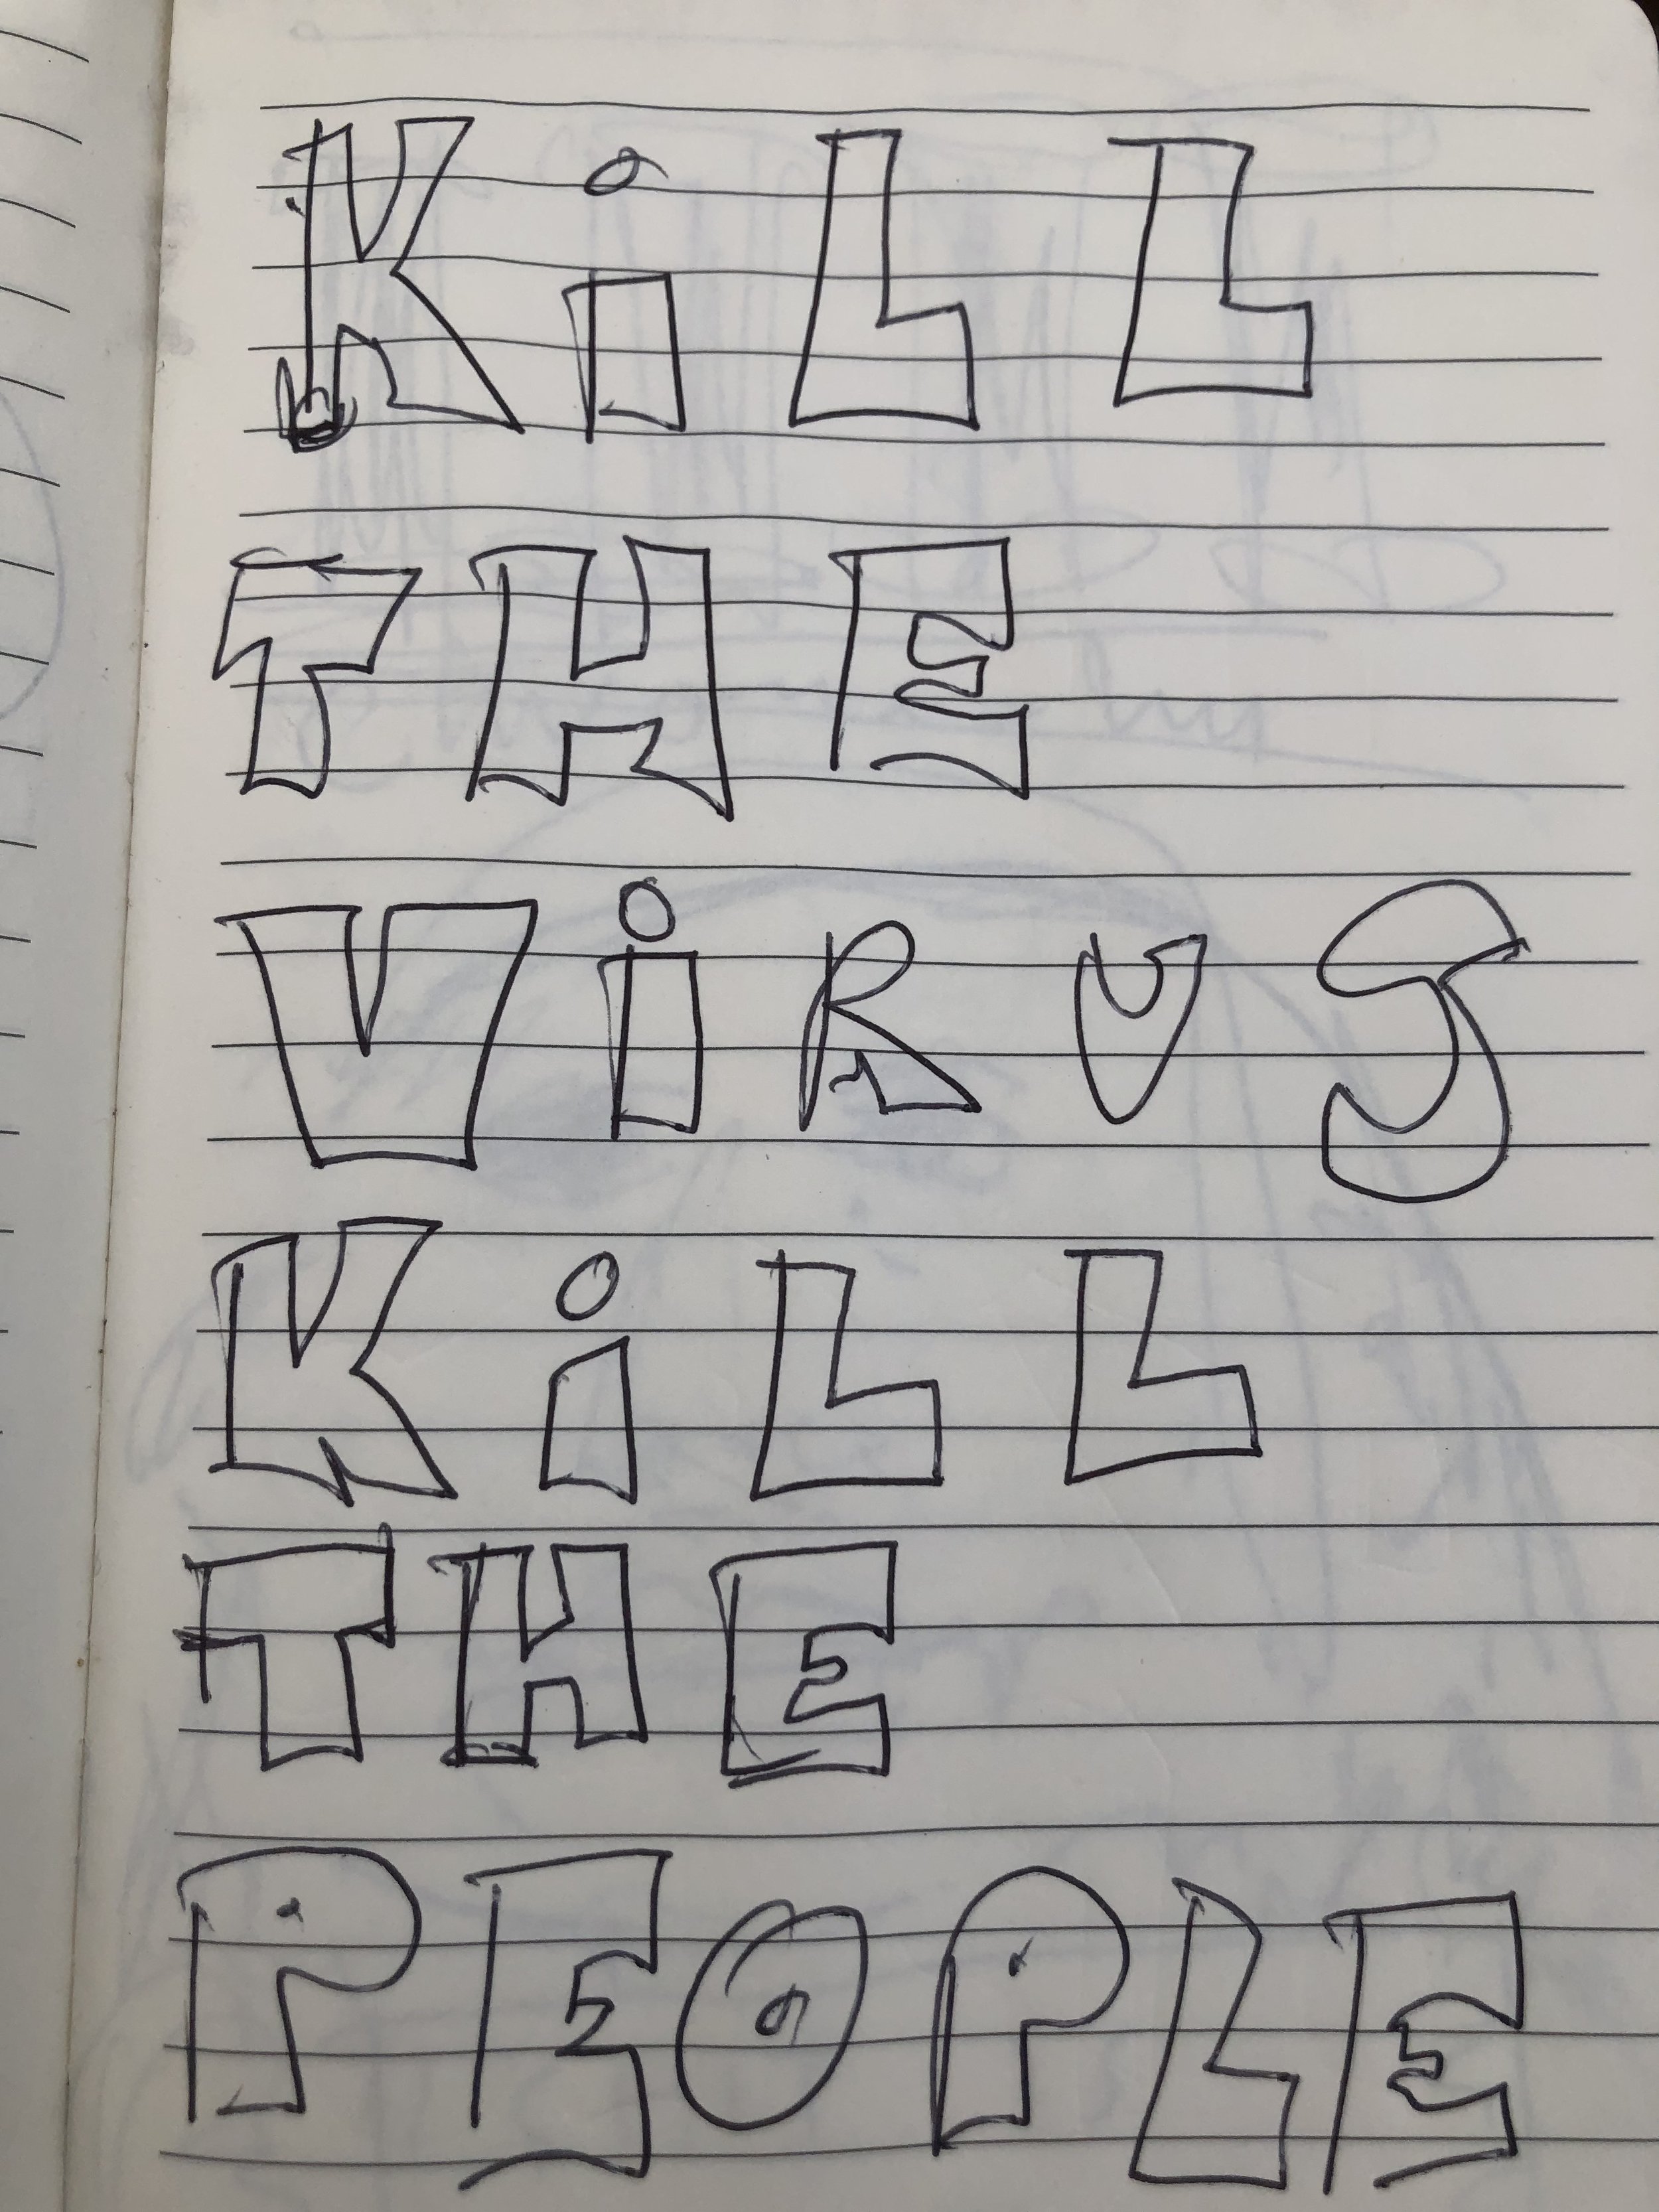 KiLL
THE
ViRUS
KiLL
THE
PEOPLE